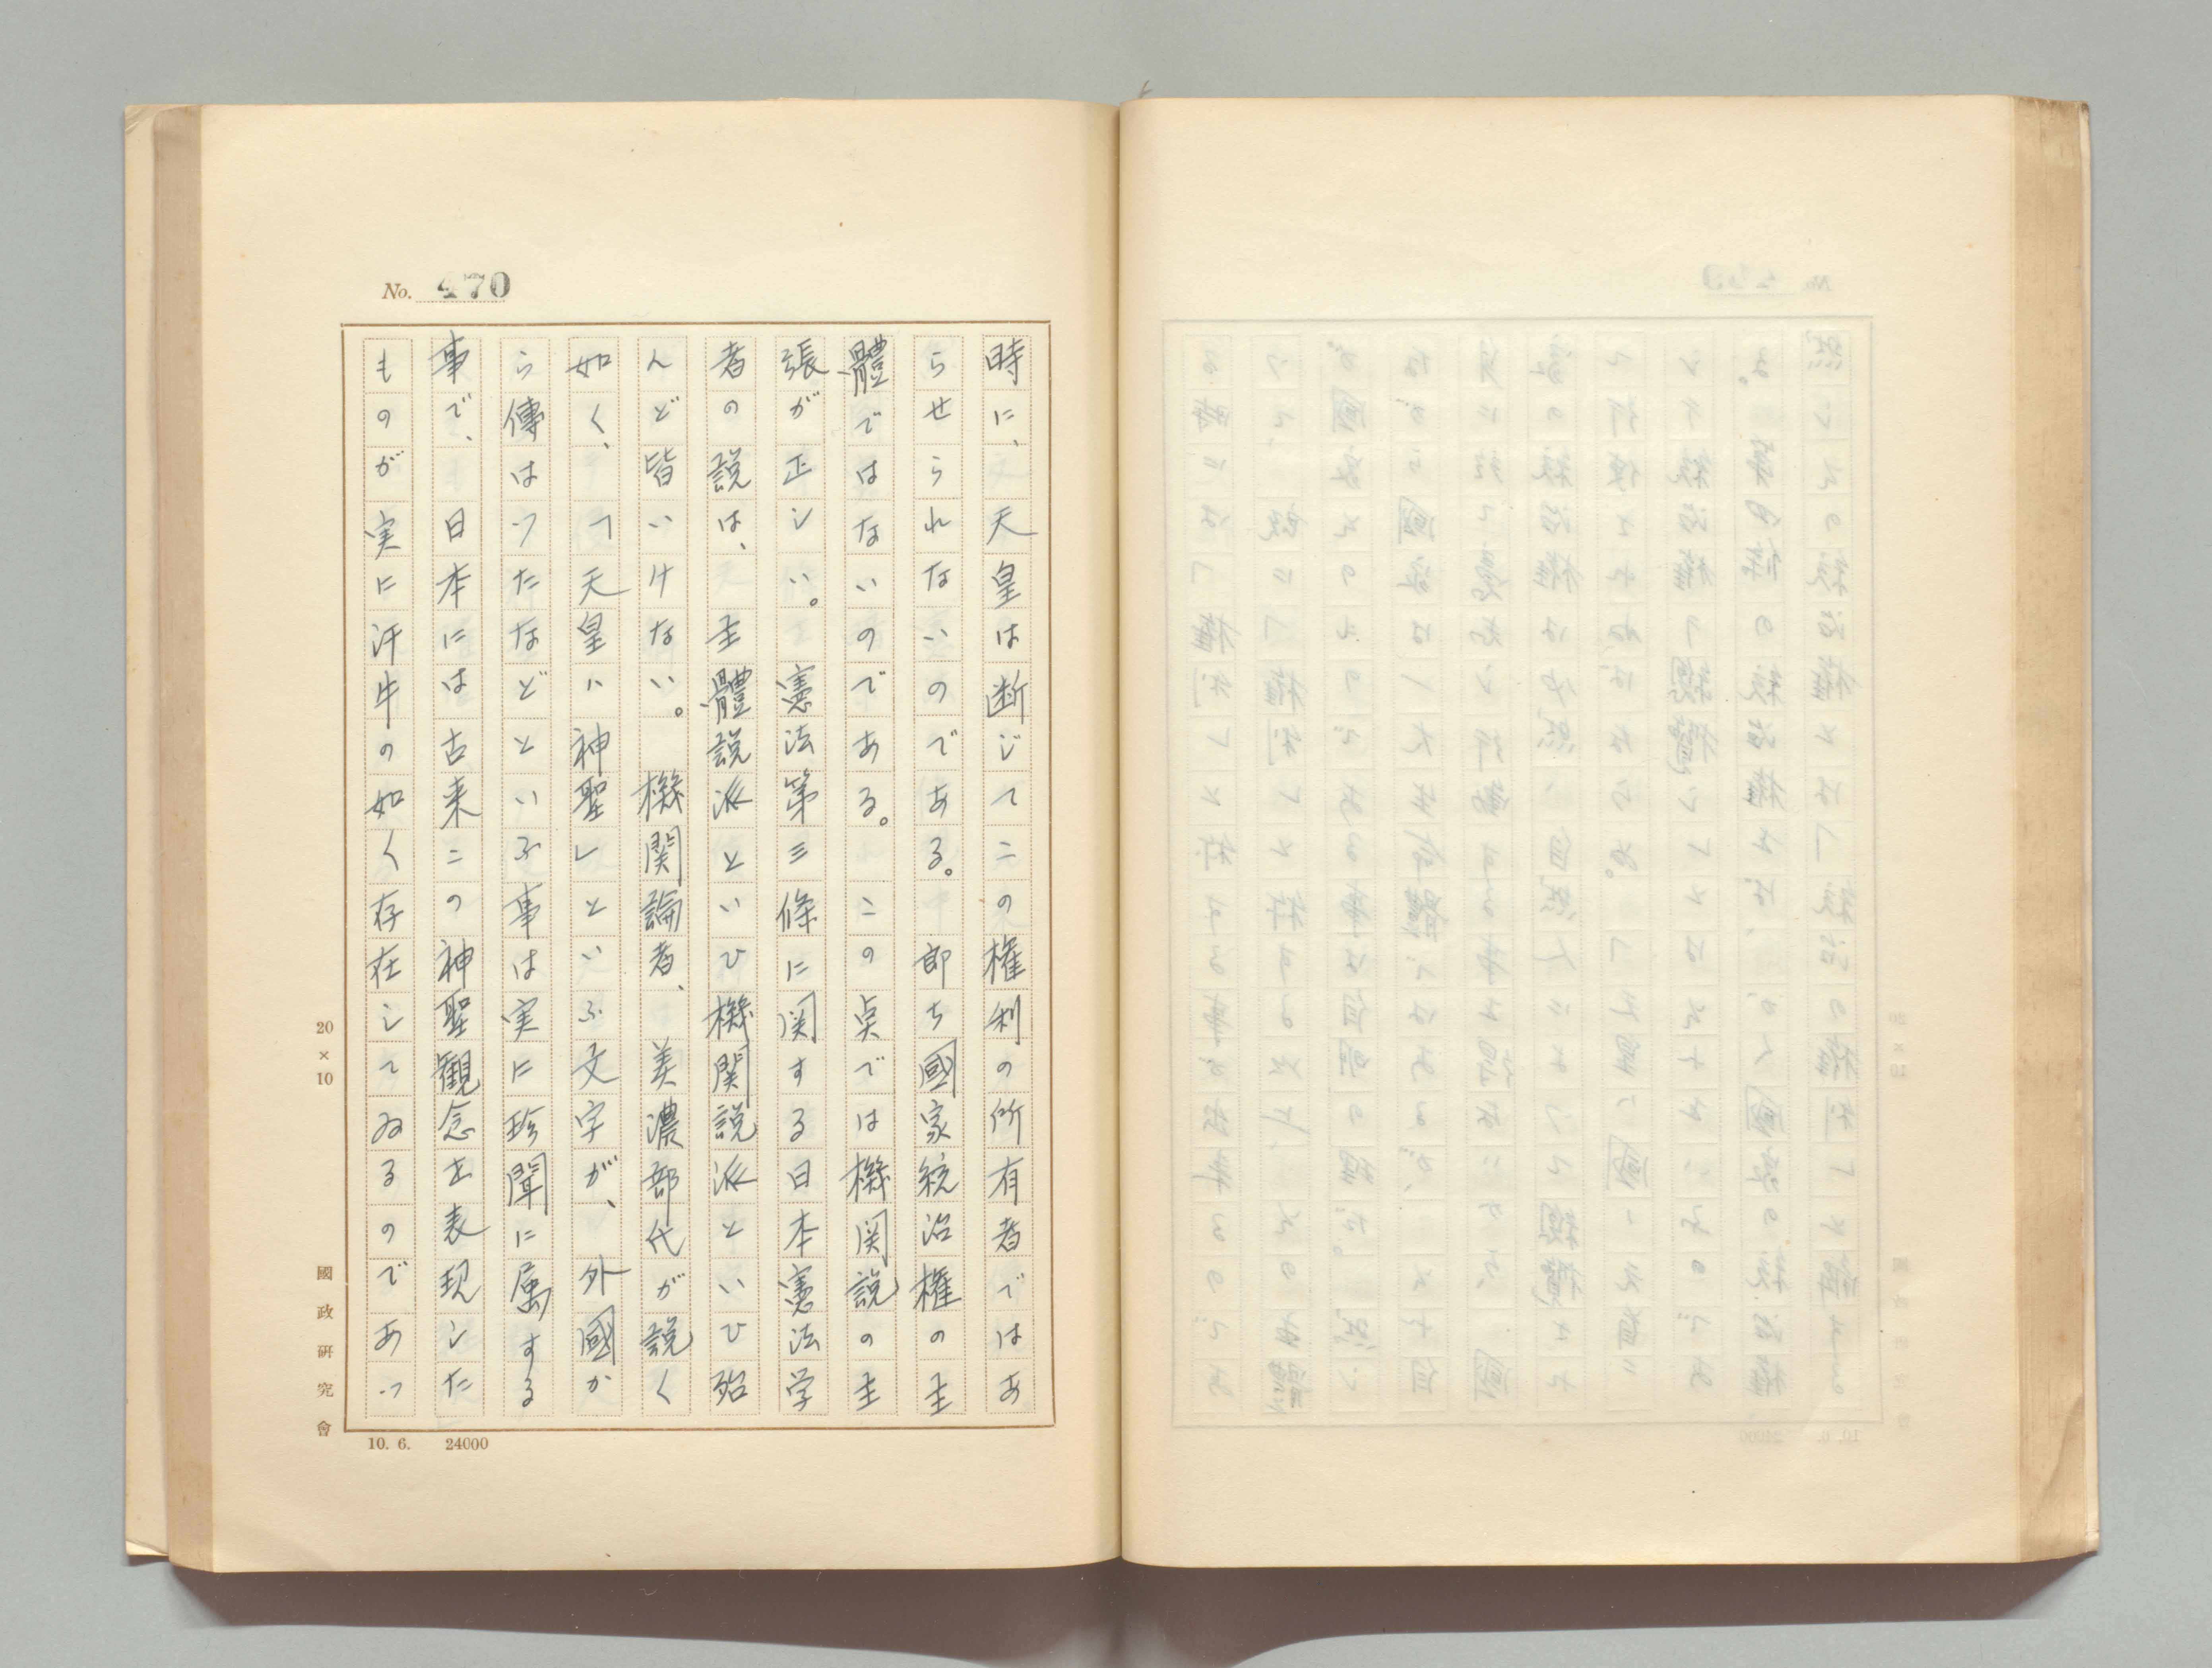 No. 470
時に、天皇は断じてこの権利の所有者ではあ
らせられないのである。即ち國家統治権の主
體ではないのである。この点では機関説の主
張が正しい。憲法第三條に関する日本憲法学
者の説は、主體説派といひ機関説派といひ殆
んど皆いけない。機関論者、美濃部代が説く
如く、「天皇ハ神聖レといふ文字が、外國か
ら傳はつたなどといふ事は実に珍聞に属する
事で、日本には古来この神聖観念を表現した
ものが実に汗牛の如く存在してゐるのであつ
20×10
國政研究會
10. 6. 24000